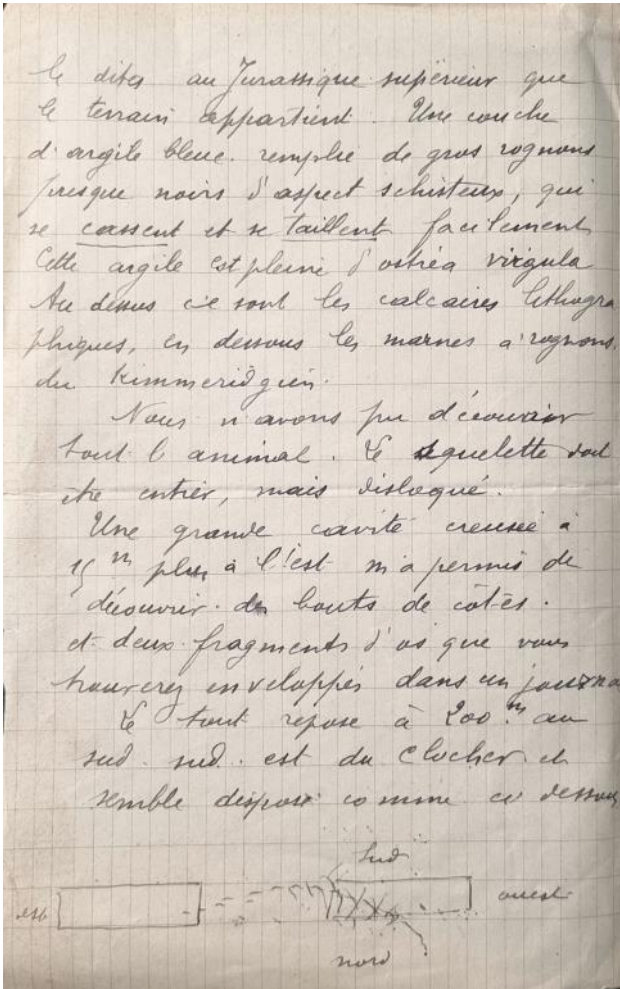 le dites au Jurassique supérieur que
le terrain appartient. Une couche
d'argile bleue remplie de gros rognons
presque noirs d'aspect schisteux, qui
se cassent et se taillent facilement
Cette argile est pleine d'ostréa virgula
Au dessus ce sont les calcaires lithogra
phiques, en dessous les marnes à rognons.
du Kimmeridgien.
Nous n'avons pu découvrir
tout l'animal. Le squelette doit
être entier, mais disloqué.
Une grande cavité creusée à
15 m plus à l'est m'a permis de
découvrir des bouts de côtes.
et deux fragments d'os que vous
trouverez enveloppés dans un journa
Le tout repose à 200 m au
sud. sud. est du clocher et
semble disposé comme ci dessous
Sud
est ouest
nord